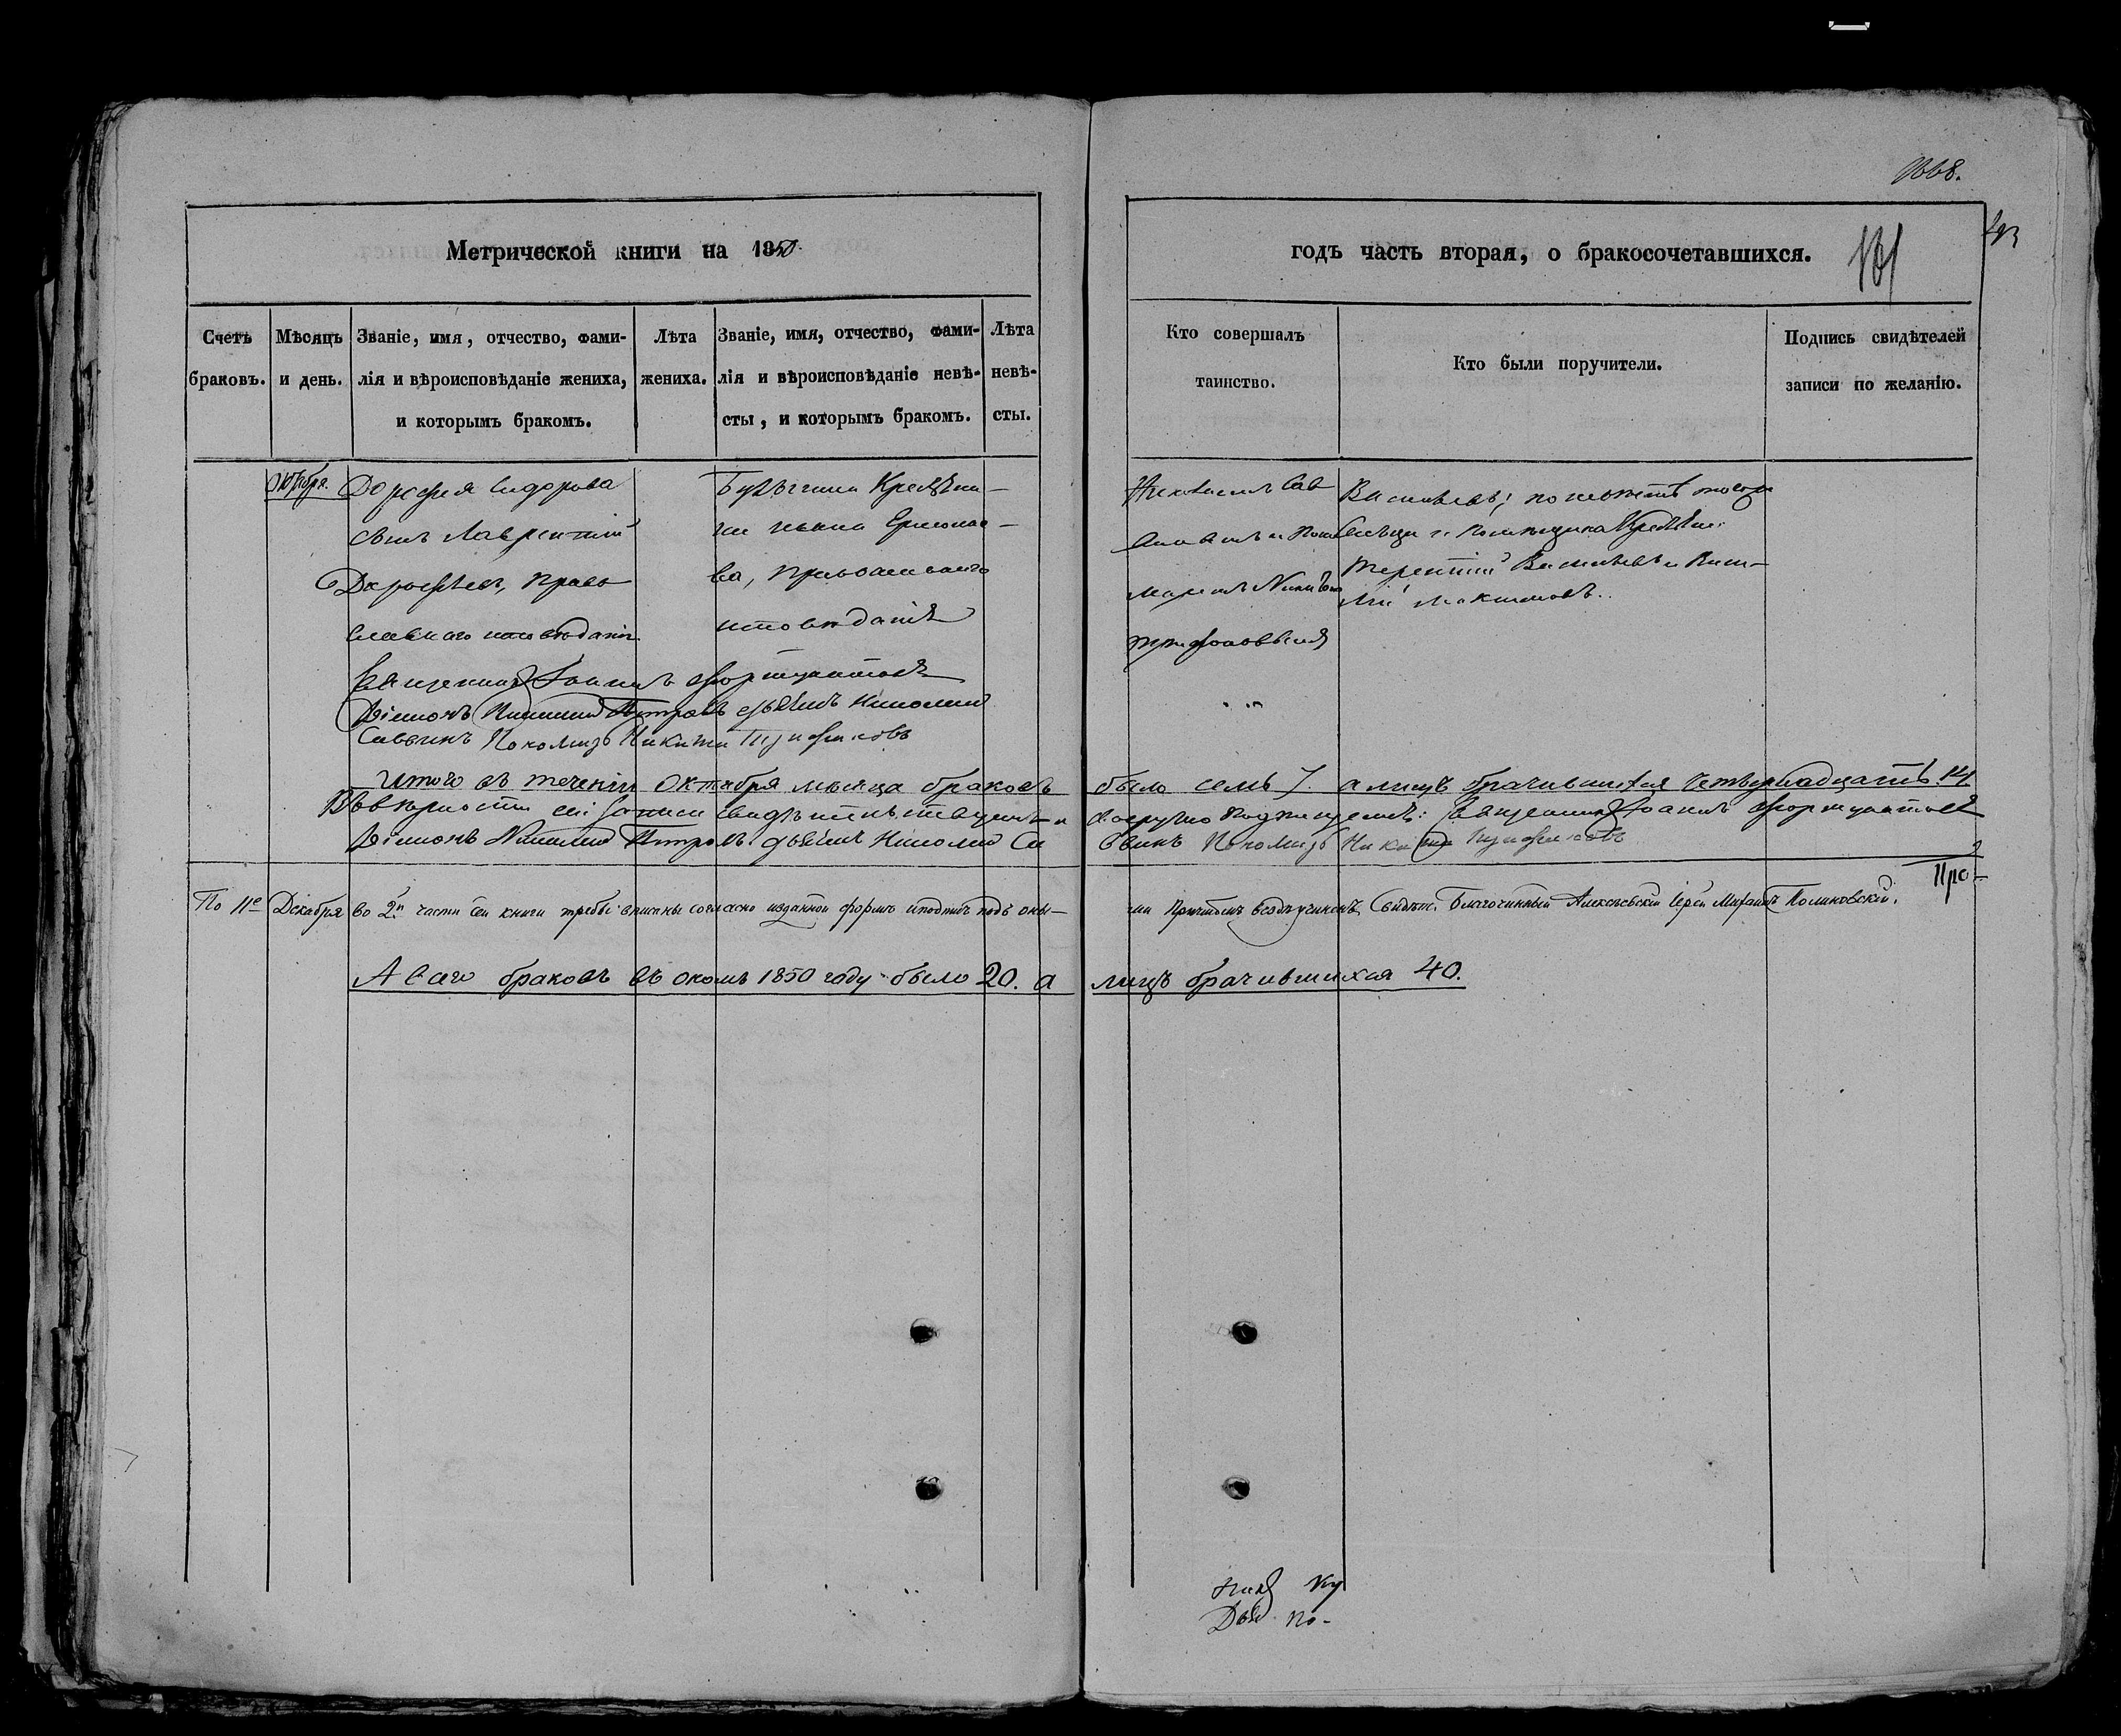 1668.
Метрической книги на 1850.
годъ часть вторая, о бракосочетавшихся.
181
Счетъ браковъ.
Мѣсяцъ и день.
Званіе, имя, отчество, фами-
лія и вѣроисповѣданіе жениха,
и которымъ бракомъ.
Лѣта
жениха.
Званіе, имя, отчество, фами-
лія и вѣроисповѣданіе невѣ-
сты, и которымъ бракомъ.
Лѣта
невѣ-
сты.
Кто совершалъ
таинство.
Кто были поручители.
Подпись свидѣтелей
записи по желанію.
Октября.
Дорофея Сидорова
сынъ Лаврентій
Дорофѣевъ, право
славнаго исповѣданія.
Ермолае-
ва, православнаго
исповѣданія
Николаемъ Сав
винымъ и Поно
маремъ Никитою
Трифоновымъ
Васильевъ; по невѣстѣ
Терентій Васильевъ и Васи-
лій Максимовъ.
Священникъ Іоаннъ Фортунатовъ
Діаконъ Николай Петровъ дьячекъ Николай
Саввинъ Пономарь Никита Трифоновъ
Итого въ теченіи Октября мѣсяца браковъ было семь 7. а лицъ брачившихся четырнадцать. 14.
Въ вѣрности сей записи свидѣтельствуемъ и Священникъ Іоаннъ Фортунатовъ
Діаконъ Николай Петровъ дьячекъ Николай Са ввинъ Пономарь Никита Трифоновъ
По 11е Декабря во 2й части сей книги требы вписаны согласно изданной формѣ и подписъ подъ оны- ми Причтомъ учиненъ. Свидѣт. Благочинный Алексѣевскій Іерей Михаилъ Поликовскій.
Про-
А всего браковъ въ ономъ 1850 году было 20. а лицъ брачившихся 40.
Ку
По-